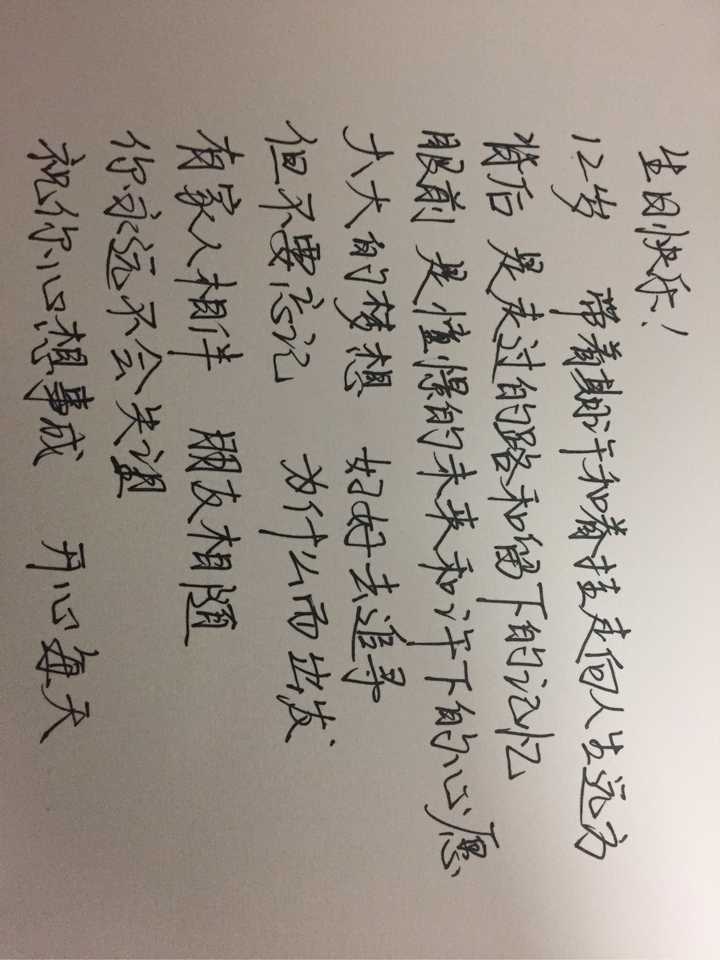 生日快乐！
12岁 带着期许和眷挂走向人生远方
背后 是走过的路和留下的记忆
眼前 是憧憬的未来和许下的心愿
大大的梦想 好好去追寻
但不要忘记 为什么而出发
有家人相伴 朋友相随
你永远不会失望
祝你心想事成 开心每天